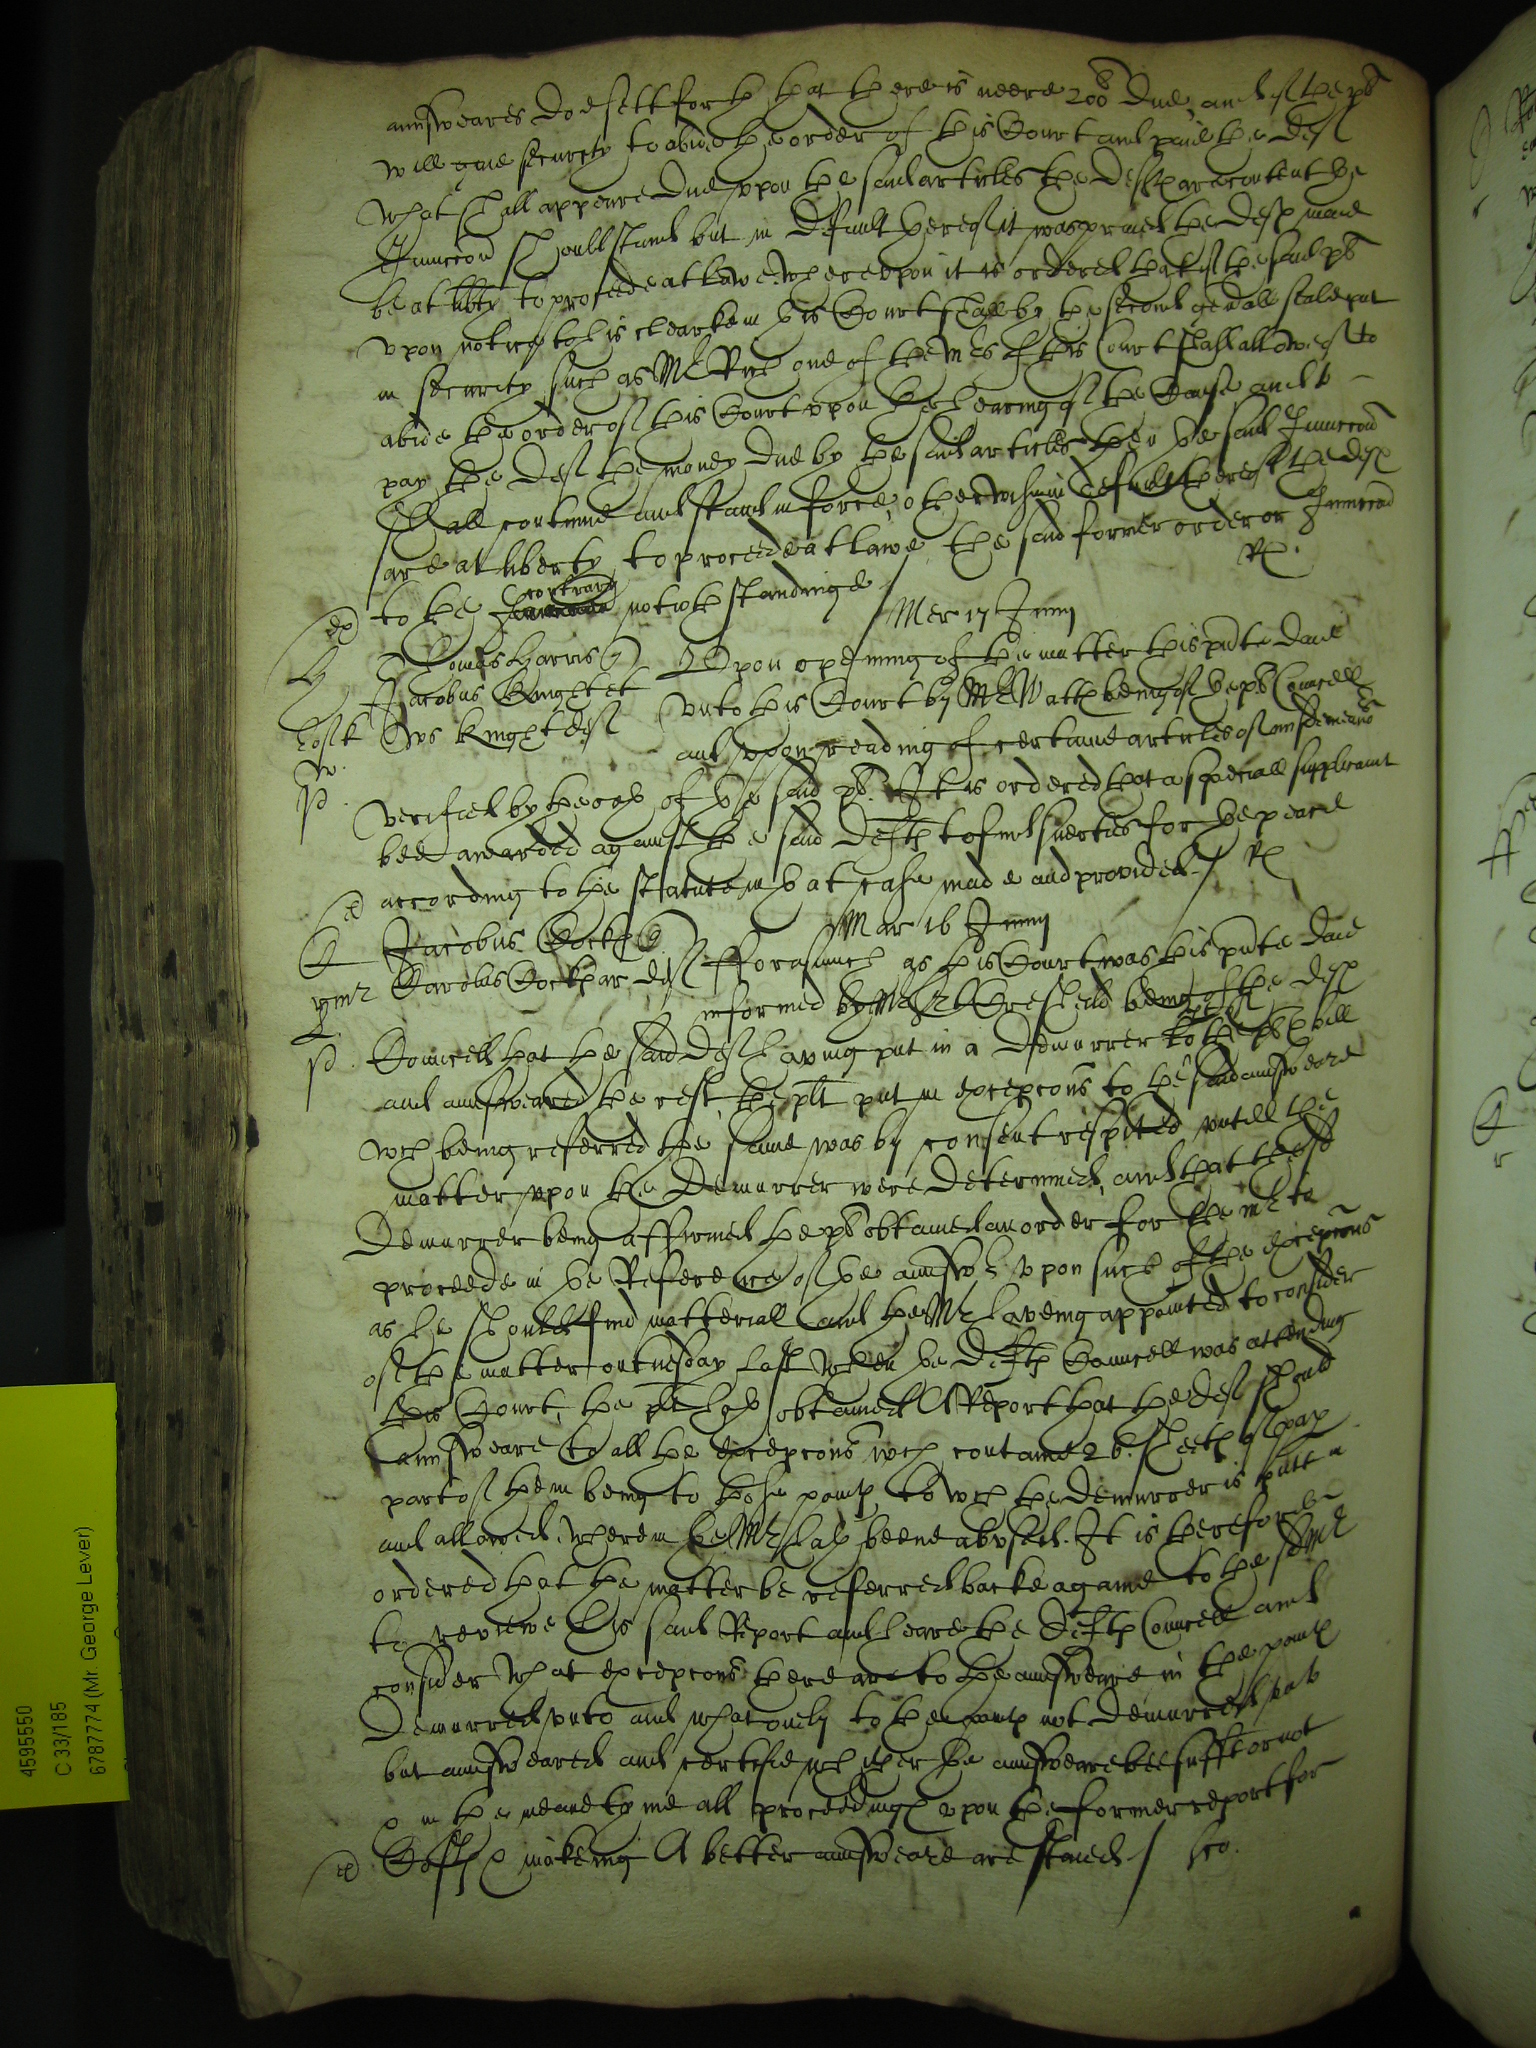 annsweares doe sett forth that there is neere 200li due and if the plt
will give security to abide the order of this Court and paie the deft
what shall appeare due upon the said articles the defts are content the
Iniunccon should stand but in default thereof it was praied the defts maie
be at libty to proceede at lawe, whereupon it is ordered that if the said plt
upon notice to his clearke in this Court shall by the second genall seale put
in security such as Mr Rich one of the Mrs of this Court shall allowe of to
abide the order of this Court upon the hearing of the Cause and to
pay the deft the money due by the said articles then the said Iniunccon
shall contynue and stand in force, otherwise in default thereof the defts
are at liberty to proceede at lawe the said former order or Iniunccon
to the contrary notwthstandinge / Rx.
Mer 17 Junij
Thomas Harris
Jacobus Knight et
ux Knight deft
Upon opening of the matter this pnte daie
unto this Court by Mr Watts being of the plts Councell
and upon reading of certaine articles of misdemeanor
verified by the oath of the said plt. It is ordered that a speciall supplicavit
bee awarded against the said Defts to find suerties for the peace
according to the statute in that case made and provided / Rx
Mar 16 Junij
Jacobus
Carolus deft
Fforasmuch as this Court was this pnte daie
informed by Mr being of the defts
Councell that the said deft having put in a Demurrer to the plts bill
and annsweared the rest, the plt put in excepcons to the said annsweare
wch being referred the same was by consent respited untill the
matter upon the Demurrer were determined, and that the said
Demurrer being affirmed the plt obtained an order for the Mr to
proceede in the Reference of the annswere upon such of the excepcons
as he should find materiall and the Mr haveing appointed to consider
of the matter on tuesday last when the Defts Councell was attending
this Court, the plt hath obtained A Report that the deft should
annsweare to all the excepcons wch containe 26 sheets of pap
part of them being to those points to wch the demurrer is putt in
and allowed, wherein the Mr hath beene abused. It is therefore
ordered that the matter be referred backe againe to the said Mr
to reviewe his said Report and heare the Defts Councell and
consider what excepcons there are to the annsweare in the points
Demurred unto and what only to the points not demurred unto
but annsweared and certifie whether the annsweare bee suffic or not
in the meane tyme all proceedings upon the former report for
makeing A better annsweare are staied /
4595550
C 33/185
6787774 (Mr. George Lever)